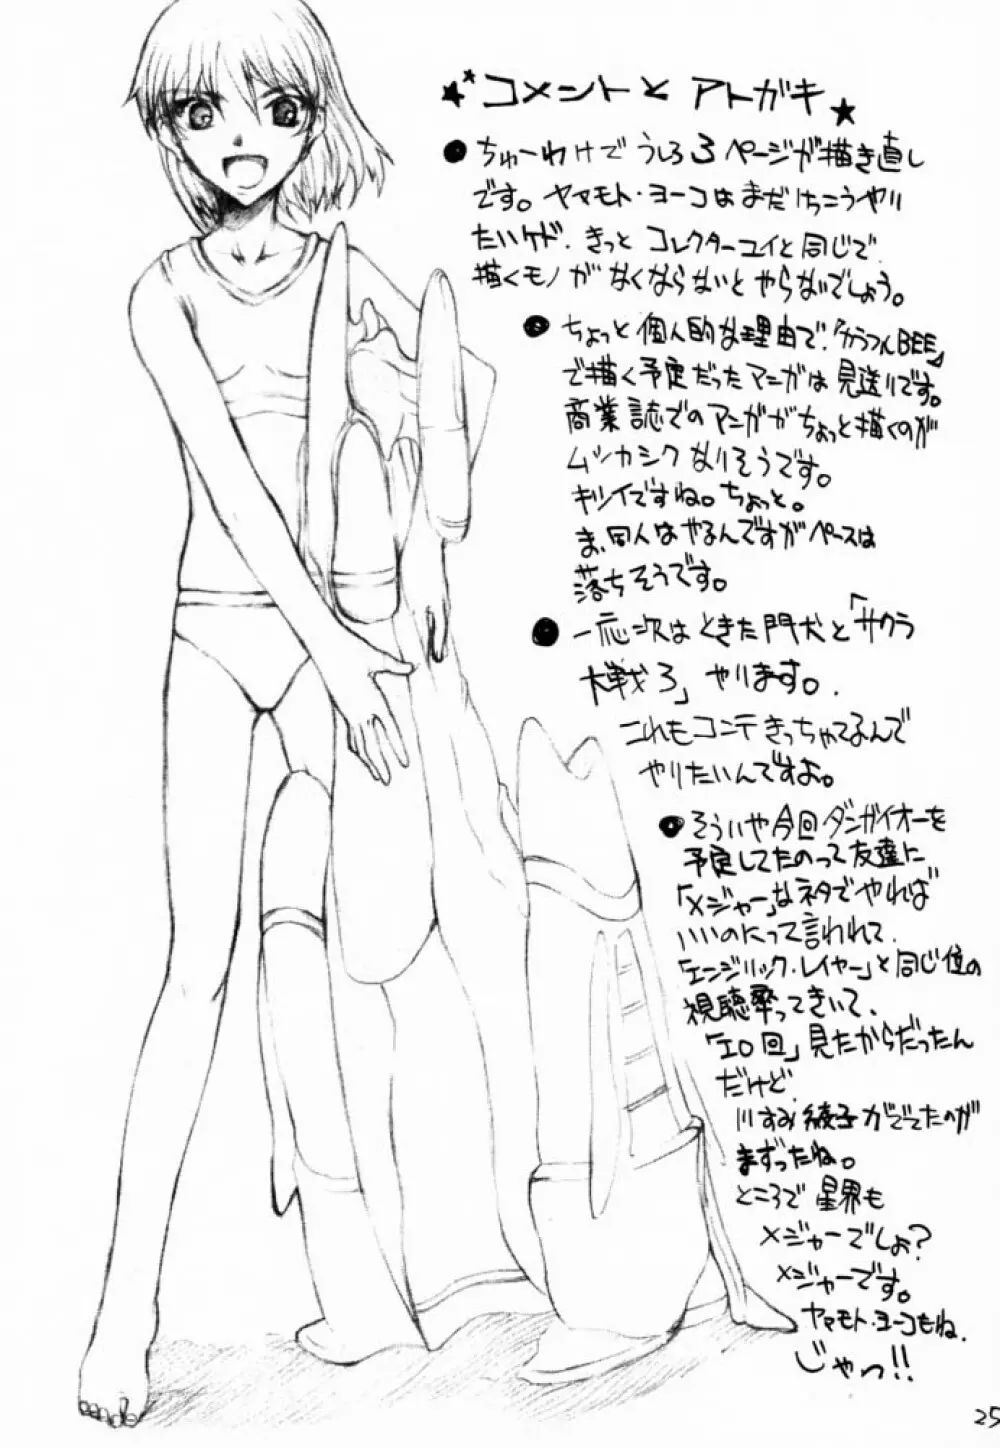 コメントと アトガキ
ちゅーわけで うしろ 3 ページが 描き直し
です。ヤマモト・ヨーコはまだ けっこうやり
たいケド、きっと コレクターユイと 同じで、
描くモノが なくならないと やらないでしょう。
ちょっと 個人的な理由で、「カラフルBEE」
で描く予定だったマンガは 見送りです。
商業誌でのマンガがちょっと描くのが
ムツカシクなりそうです。
キツイですね。ちょっと。
ま、同人はやるんですがペースは
落ちそうです。
一応次は ときた門犬と「サクラ
大戦3」やります。
これもコンテきっちゃてるんで
やりたいんですよ。
そういや 今回 ダンガイオーを
予定してたのって友達に
「メジャー」なネタでやれば
いいのにって言われて、
「エンジリック・レイヤー」と同じ位の
視聴率ってきいて、
「エロ回」見たからだったん
だけど、
川すみ綾子がでてたのが
まずったね。
ところで 星界も
メジャーでしょ?
メジャーです。
ヤマモト・ヨーコもね。
じゃっ!!
25